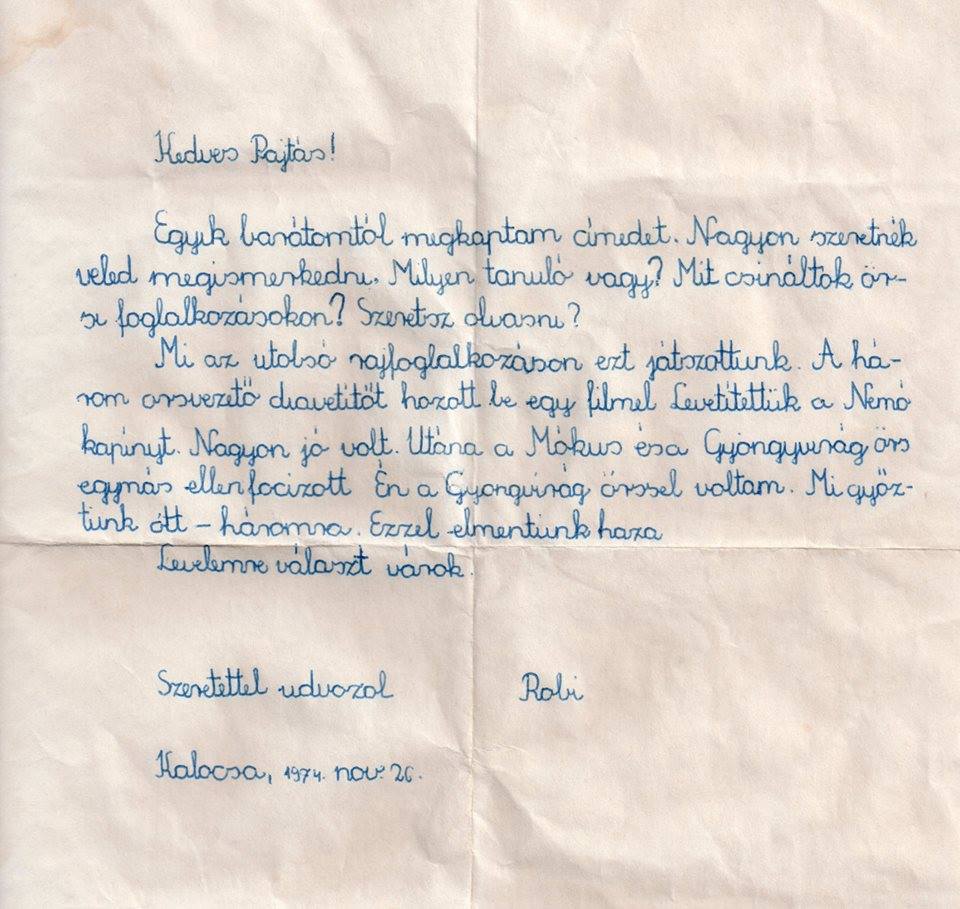 Kedves Pajtás!
Egyik barátomtól megkaptam címedet. Nagyon szeretnék
veled megismerkedni. Milyen tanuló vagy? Mit csináltok őr-
si foglalkozásokon? Szeretsz olvasni?
Mi az utolsó rajfoglalkozáson ezt játszottunk. A há-
rom orsvezető diavetitőt hozott be egy filmel Levetitettük a Nemó
kapinyt. Nagyon jó volt. Utána a Mókus ésa Gyöngyvirág örs
egymás ellen focizott Én a Gyongvirág örssel voltam. Mi győz-
tünk ött – háromra. Ezzel elmentünk haza
Levelemre választ várok.
Szeretettel udvozol Robi
Kalocsa, 1974. nov. 26.